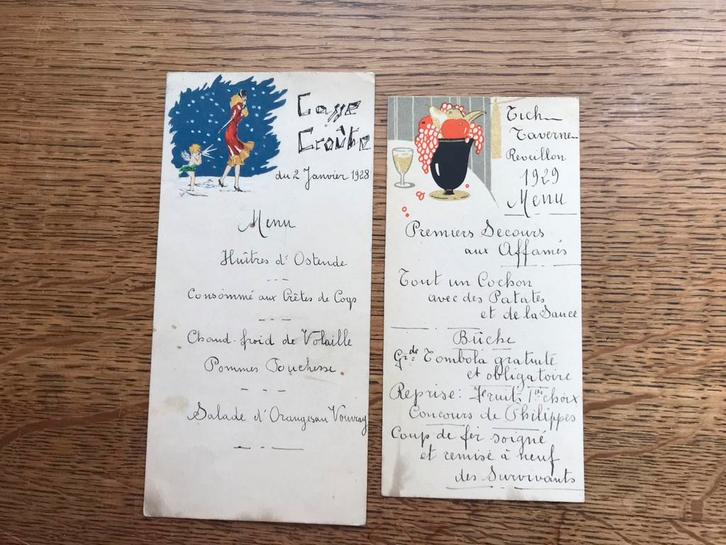 Casse
Croûte
du 2 Janvier 1928
Menu
Huîtres d'Ostende
Consommé aux Crêtes de Coqs
Chaud-froid de Volaille
Pommes Duchesse
Salade d'Oranges au Vouvray
Tich
Taverne
Reveillon
1929
Menu
Premiers Secours
aux Affamés
Tout un Cochon
avec des Patates
et de la Sauce
Bûche
Gde Tombola gratuite
et obligatoire
Reprise: Fruits 1er choix
Concours de Philippes
Coup de fer soigné
et remise à neuf
des Survivants